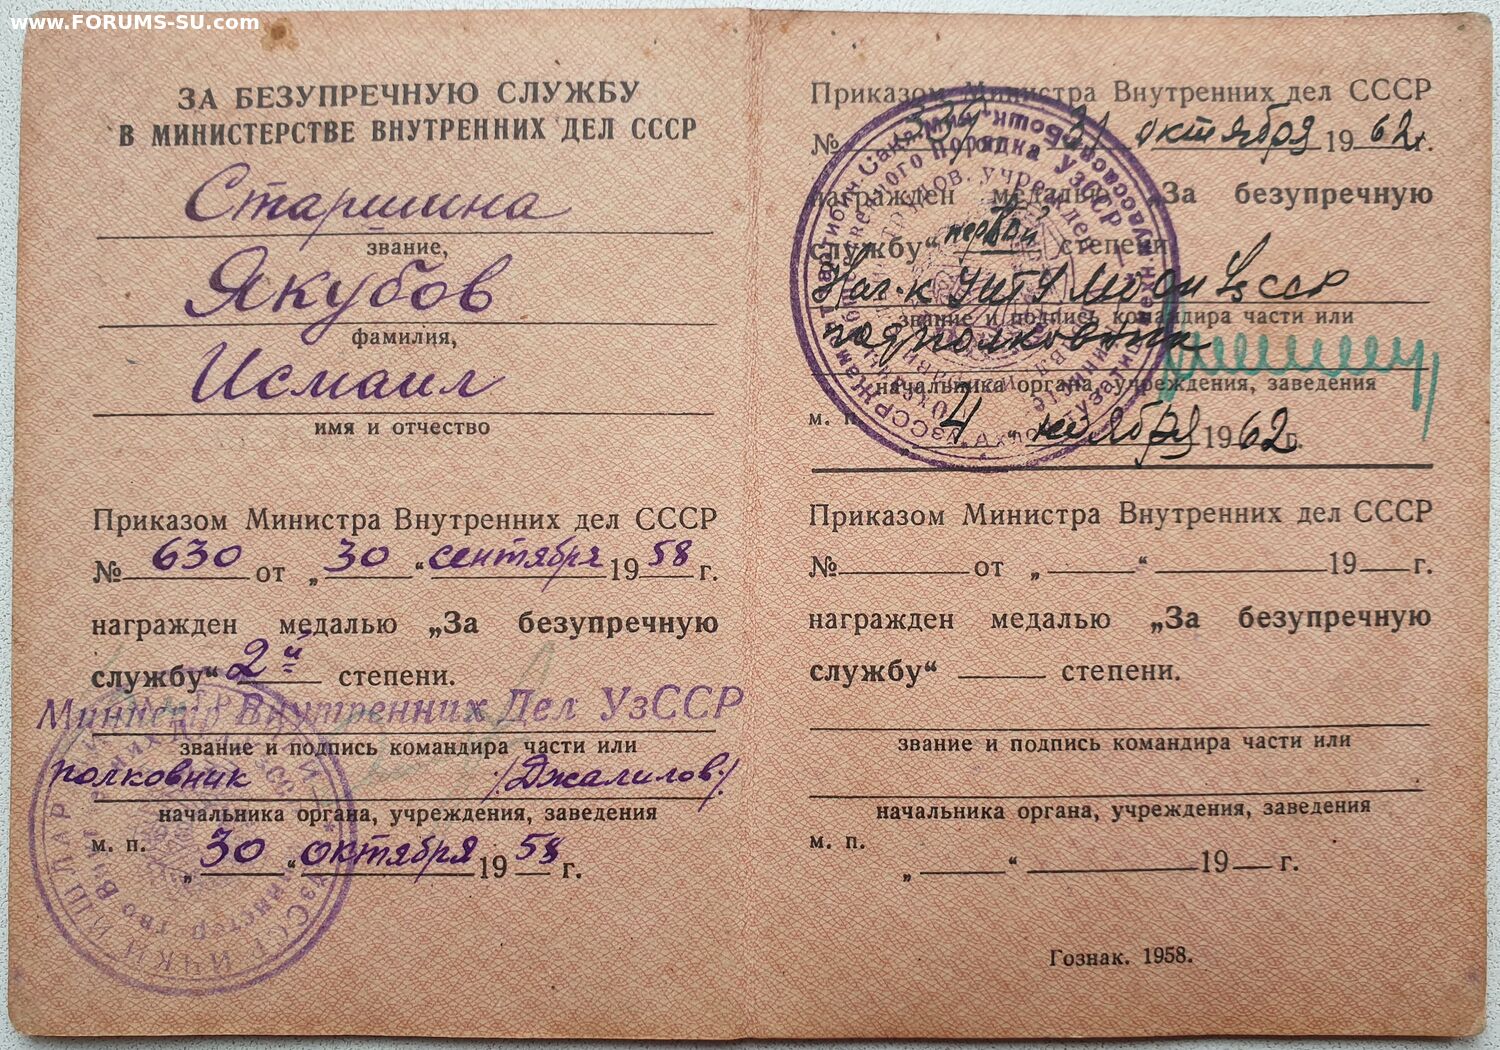 www.FORUMS-SU.com
ЗА БЕЗУПРЕЧНУЮ СЛУЖБУ
В МИНИСТЕРСТВЕ ВНУТРЕННИХ ДЕЛ СССР
Старшина
звание,
Якубов
фамилия,
Исмаил
имя и отчество
Приказом Министра Внутренних дел СССР
№ 630 от „30“ сентября 1958 г.
награжден медалью „За безупречную
службу“ 2й степени.
Министр Внутренних Дел УзССР
звание и подпись командира части или
полковник /Джалилов/
начальника органа, учреждения, заведения
м. п.
„30“ октября 1958 г.
Приказом Министра Внутренних дел СССР
№ 31 октября 1962 г.
награжден медалью „За безупречную
службу“ первой степени
Нач-к УИТУ МООП УзССР
звание и подпись командира части или
подполковник
начальника органа, учреждения, заведения
м. п.
4 ноября 1962 г.
Приказом Министра Внутренних дел СССР
№ от „ “ 19 г.
награжден медалью „За безупречную
службу“ степени.
звание и подпись командира части или
начальника органа, учреждения, заведения
м. п.
„ “ 19 г.
Гознак. 1958.